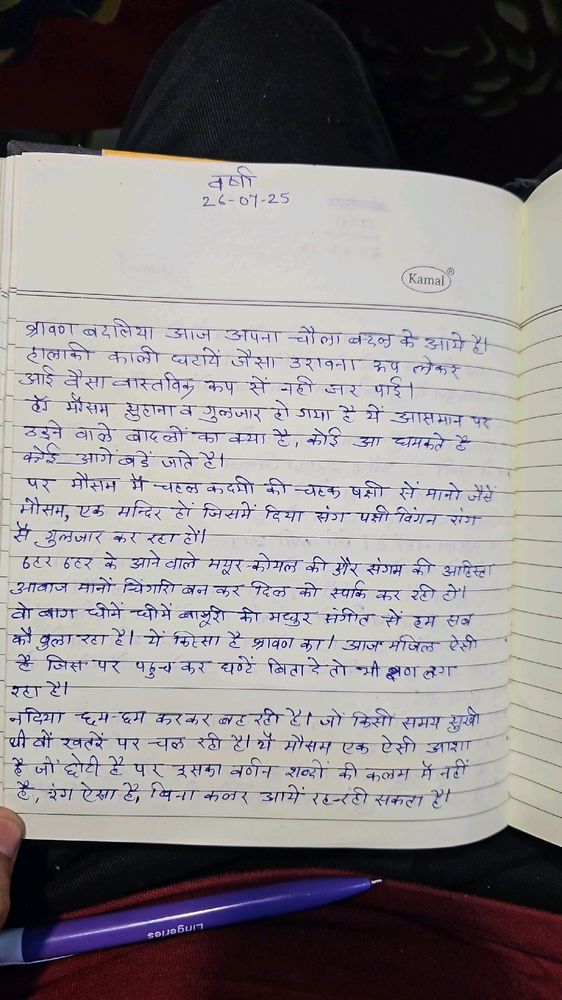 वर्षा
26-07-25
Kamal®
श्रावण बदलिया आज अपना चौला बदल के आये है।
हालाकी काली घटायें जैसा डरावना रूप लेकर
आई वैसा वास्तविक रूप से नही कर पाई।
हाँ मौसम सुहाना व गुलजार हो गया है ये आसमान पर
उड़ने वाले बादलों का क्या है, कोई आ धमकते है
कोई आगें बडें जाते है।
पर मौसम में चहल कदमी की चहक पक्षी सें मानो जैसें
मौसम, एक मन्दिर हो जिसमें दिया संग पक्षी विंगन रांग
सें गुलजार कर रहा हों।
ठहर ठहर के आने वाले मयूर-कोयल की और संगम की आहिस्ता
आवाज मानों चिंगारी बन कर दिल को स्पर्कि कर रही हो।
वो बाग धीमें धीमें बाजुरी की मधुर संगीत सें हम सब
को बुला रहा है। यें किस्सा है श्रावण का। आज मंजिल ऐसी
है जिस पर पहुच कर घण्टें बिता दे तो भी क्षण लग
रहा है।
नदिया छम-छम करकर बह रही है। जों किसी समय सुखी
थी वों खतरें पर चल रही है। ये मौसम एक ऐसी आशा
है जों छोटी है पर इसका वर्णन शब्दों की कलम में नहीं
है, रंग ऐसा है, बिना कलर आयें रह सकता है।
Lingeries